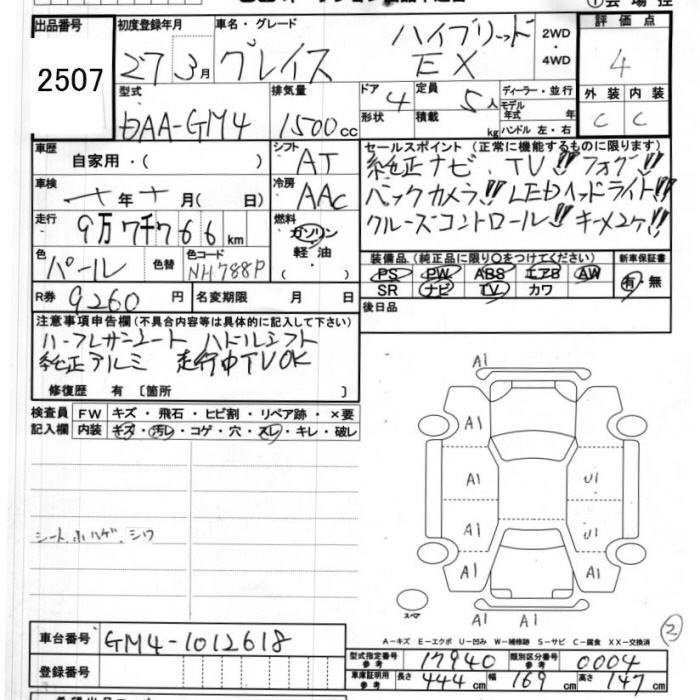 出品番号 2507
初度登録年月 27 3月
車名・グレード グレイス ハイブリッド EX
2WD ・ 4WD
評価点 4
外装 内装
C C
型式 DAA-GM4
排気量 1500cc
ドア 4
形状
定員 5人
積載 kg
ディーラー・並行
モデル年式 年式
ハンドル 左・右
車歴 自家用・( )
シフト AT
車検 年 月( 日)
冷房 AAC
走行 9万7千766km
燃料 ガソリン 軽油 ( )
色 パール 色替
色コード NH788P
R券 9260円
名変期限 月 日
セールスポイント (正常に機能するものに限ります)
純正ナビ、TV!! フォグ!!
バックカメラ!! LEDヘッドライト!!
クルーズコントロール!! キーメ2ケ!!
装備品(純正品に限り○をつけてください)
PS PW ABS エアB AW
SR ナビ TV カワ
新車保証書
有・無
後日品
注意事項申告欄(不具合内容等は具体的に記入して下さい)
ハーフレザーシート パドルシフト
純正アルミ 走行中TVOK
修復歴 有 〔箇所 〕
検査員記入欄
FW キズ・飛石・ヒビ割・リペア跡・×要
内装 キズ・汚レ・コゲ・穴・スレ・キレ・破レ
シート.ホツレ.シワ
A1
A1 A1
A1 U1
A1 U1
A1 A1
A1 A1
スペア
②
A-キズ E-エクボ U-凹み W-補修跡 S-サビ C-腐食 XX-交換済
車台番号 GM4-1012618
登録番号
型式指定番号 参考 17940
類別区分番号 参考 0004
車庫証明用 参考 長さ 444cm 幅 169cm 高さ 147cm